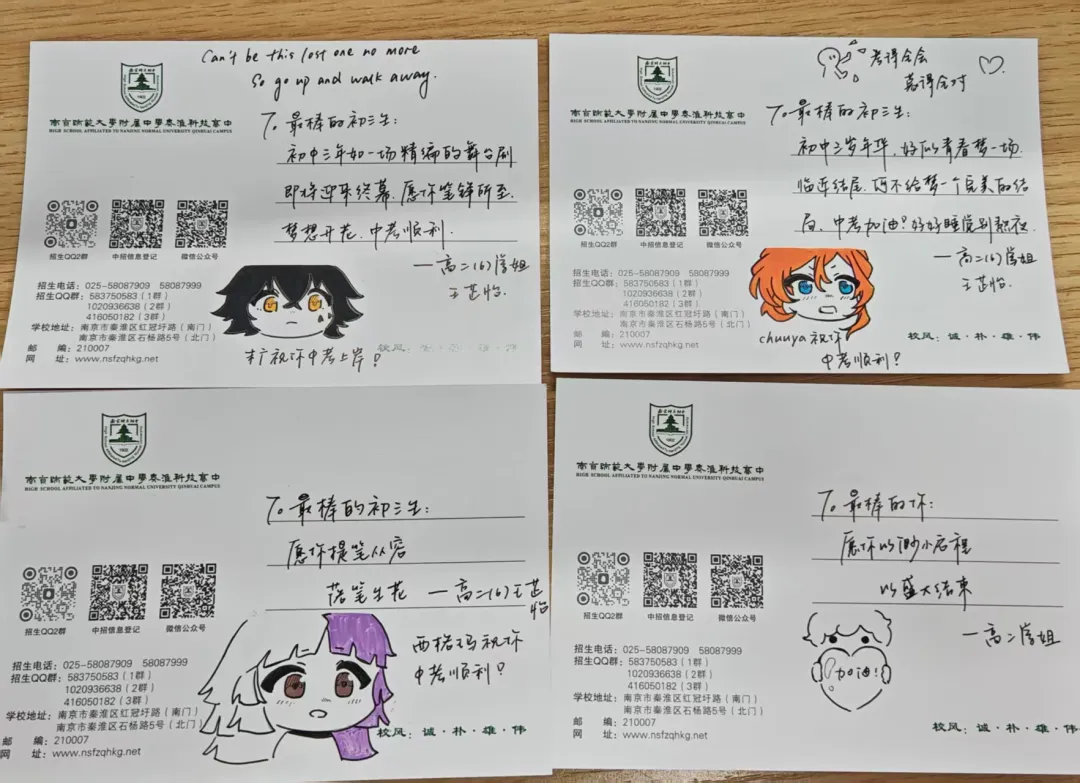 Can't be this lost one no more
So go up and walk away.
南京師範大學附属中學秦淮科技高中
HIGH SCHOOL AFFILIATED TO NANJING NORMAL UNIVERSITY QINHUAI CAMPUS
To 最棒的初三生：
初中三年如一场精编的舞台剧
即将迎来终幕，愿你笔锋所至，
梦想开花，中考顺利．
—高二(6)学姐
王芷怡．
招生QQ2群
中招信息登记
微信公众号
招生电话：025-58087909 58087999
招生QQ群：583750583（1群）
1020936638（2群）
416050182（3群）
学校地址：南京市秦淮区红冠圩路（南门）
南京市秦淮区石杨路5号（北门）
邮 编：210007
网 址：www.nsfzqhkg.net
祝你中考上岸！
校风：诚·朴·雄·伟
考得全会
蒙得全对
南京師範大學附属中學秦淮科技高中
HIGH SCHOOL AFFILIATED TO NANJING NORMAL UNIVERSITY QINHUAI CAMPUS
To 最棒的初三生：
初中三岁年华，好似青春梦一场．
临近结尾，何不给梦一个完美的结
局．中考加油！好好睡觉别熬夜．
—高二(6)学姐
王芷怡．
招生QQ2群
中招信息登记
微信公众号
招生电话：025-58087909 58087999
招生QQ群：583750583（1群）
1020936638（2群）
416050182（3群）
学校地址：南京市秦淮区红冠圩路（南门）
南京市秦淮区石杨路5号（北门）
邮 编：210007
网 址：www.nsfzqhkg.net
chuuya 祝你
中考顺利！
校风：诚·朴·雄·伟
南京師範大學附属中學秦淮科技高中
HIGH SCHOOL AFFILIATED TO NANJING NORMAL UNIVERSITY QINHUAI CAMPUS
To 最棒的初三生：
愿你提笔从容
落笔生花 —高二(6)王芷怡
招生QQ2群
中招信息登记
微信公众号
西格玛祝你
中考顺利！
招生电话：025-58087909 58087999
招生QQ群：583750583（1群）
1020936638（2群）
416050182（3群）
学校地址：南京市秦淮区红冠圩路（南门）
南京市秦淮区石杨路5号（北门）
邮 编：210007
网 址：www.nsfzqhkg.net
校风：诚·朴·雄·伟
南京師範大學附属中學秦淮科技高中
HIGH SCHOOL AFFILIATED TO NANJING NORMAL UNIVERSITY QINHUAI CAMPUS
To 最棒的你：
愿你以渺小启程
以盛大结束
—高二学姐
招生QQ2群
中招信息登记
微信公众号
加油！
招生电话：025-58087909 58087999
招生QQ群：583750583（1群）
1020936638（2群）
416050182（3群）
学校地址：南京市秦淮区红冠圩路（南门）
南京市秦淮区石杨路5号（北门）
邮 编：210007
网 址：www.nsfzqhkg.net
校风：诚·朴·雄·伟